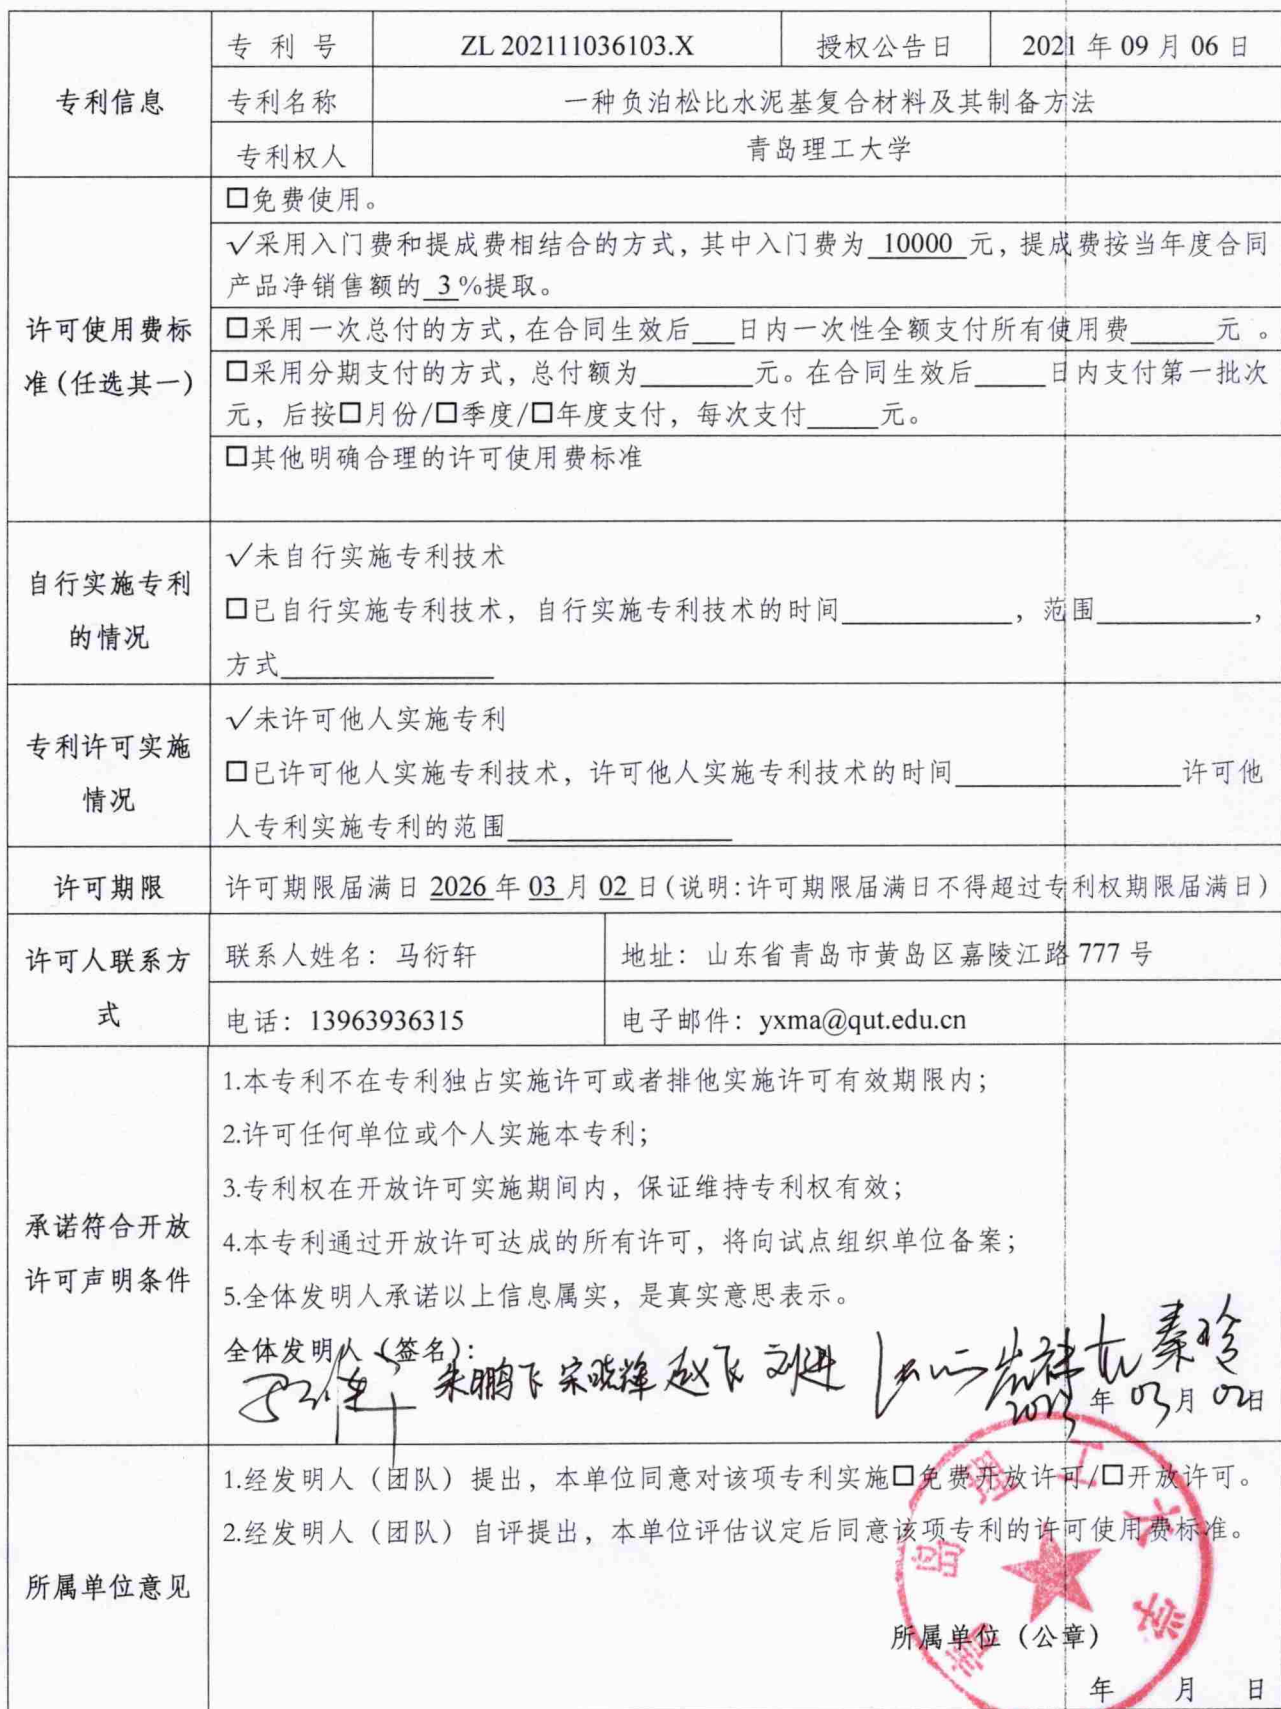 专利信息
专 利 号 ZL 202111036103.X 授权公告日 2021 年 09 月 06 日
专利名称 一种负泊松比水泥基复合材料及其制备方法
专利权人 青岛理工大学
许可使用费标准(任选其一)
□免费使用。
√采用入门费和提成费相结合的方式，其中入门费为 10000 元，提成费按当年度合同
产品净销售额的 3 %提取。
□采用一次总付的方式，在合同生效后___日内一次性全额支付所有使用费______元 。
□采用分期支付的方式，总付额为________元。在合同生效后_____日内支付第一批次
元，后按□月份/□季度/□年度支付，每次支付_____元。
□其他明确合理的许可使用费标准
自行实施专利
的情况
√未自行实施专利技术
□已自行实施专利技术，自行实施专利技术的时间____________，范围___________，
方式_______________
专利许可实施
情况
√未许可他人实施专利
□已许可他人实施专利技术，许可他人实施专利技术的时间________________许可他
人专利实施专利的范围________________
许可期限 许可期限届满日 2026 年 03 月 02 日(说明:许可期限届满日不得超过专利权期限届满日)
许可人联系方
式
联系人姓名：马衍轩 地址：山东省青岛市黄岛区嘉陵江路 777 号
电话：13963936315 电子邮件：yxma@qut.edu.cn
承诺符合开放
许可声明条件
1.本专利不在专利独占实施许可或者排他实施许可有效期限内；
2.许可任何单位或个人实施本专利；
3.专利权在开放许可实施期间内，保证维持专利权有效；
4.本专利通过开放许可达成的所有许可，将向试点组织单位备案；
5.全体发明人承诺以上信息属实，是真实意思表示。
全体发明人（签名）：
朱鹏飞 宋晓辉 赵飞 刘进 秦玲
2023 年 03 月 02 日
所属单位意见
1.经发明人（团队）提出，本单位同意对该项专利实施□免费开放许可/□开放许可。
2.经发明人（团队）自评提出，本单位评估议定后同意该项专利的许可使用费标准。
青岛理工大学
所属单位（公章）
年 月 日